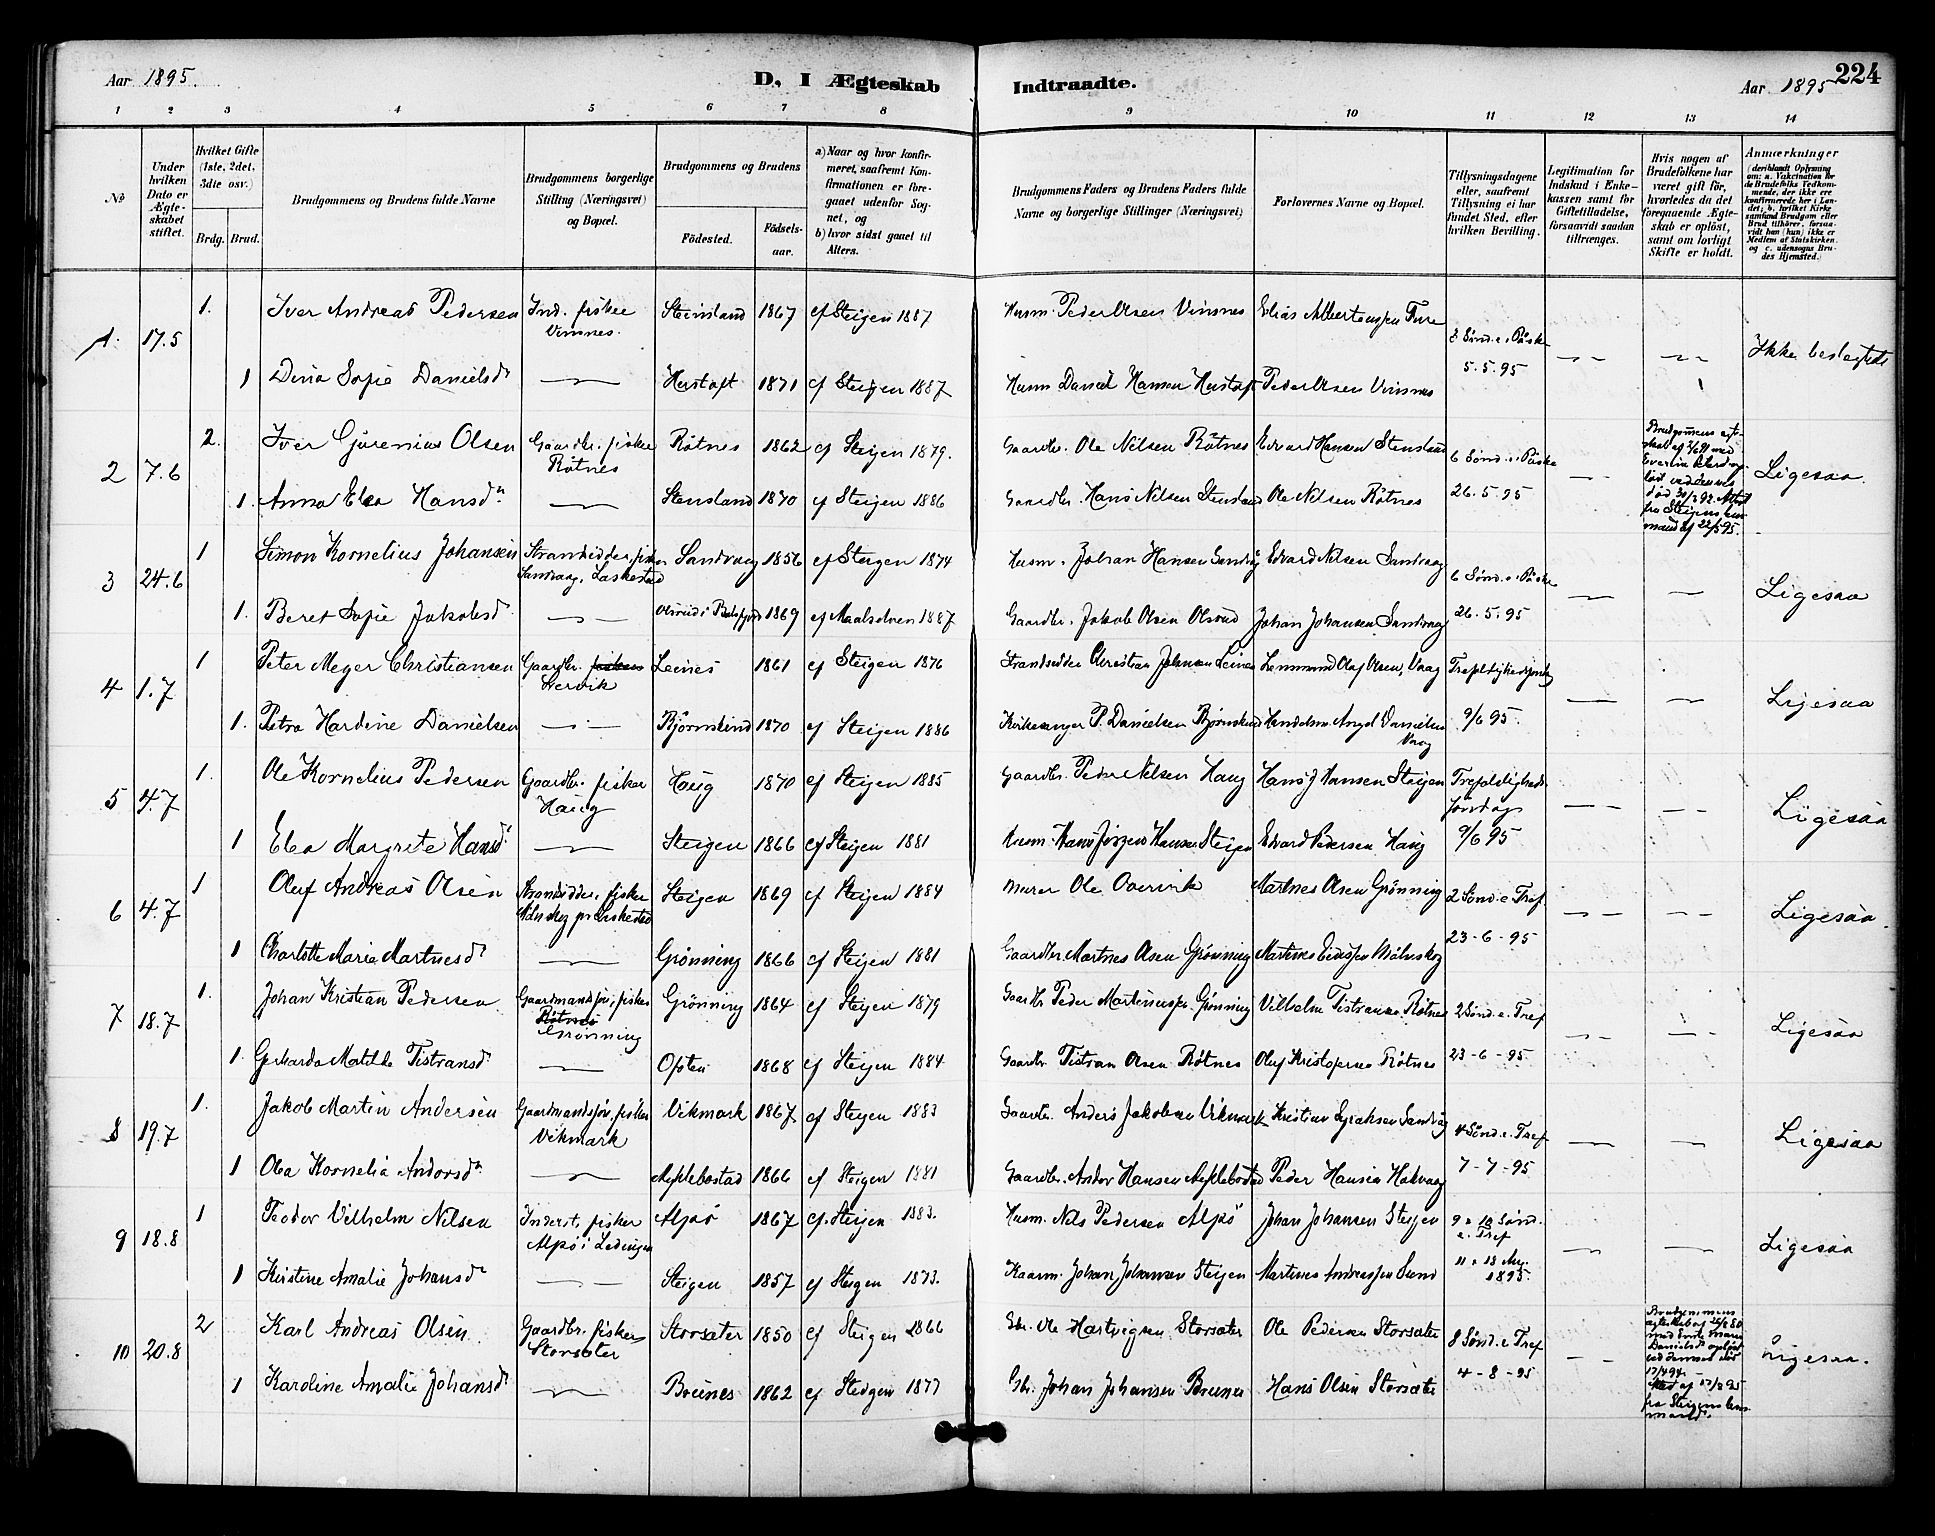 Aar 1895.
D, I Ægteskab Indtraadte.
Aar 1895
224
1 2 3 4 5 6 7 8 9 10 11 12 13 14
№
Under hvilken Dato er Ægteskabet stiftet.
Hvilket Gifte (1ste, 2det, 3die osv.)
Brdg. Brud.
Brudgommens og Brudens fulde Navne
Brudgommens borgerlige Stilling (Næringsvei) og Bopæl.
Brudgommens og Brudens
Födested.
Födselsaar.
a) Naar og hvor konfirmeret, saafremt Konfirmationen er foregaaet udenfor Sognet, og
b) hvor sidst gaaet til Alters.
Brudgommens Faders og Brudens Faders fulde Navne og borgerlige Stillinger (Næringsvei)
Forlovernes Navne og Bopæl.
Tillysningsdagene eller, saafremt Tillysning ei har fundet Sted, efter hvilken Bevilling.
Legitimation for Indskud i Enkekassen samt for Giftetilladelse, forsaavidt saadan tiltrænges.
Hvis nogen af Brudefolkene har været gift för, hvorledes da det foregaaende Ægteskab er oplöst, samt om lovligt Skifte er holdt.
Anmærkninger (deriblandt Oplysning om: a. Vakcination for de Brudefolks Vedkommende, der ikke ere konfirmerede her i Landet; b. hvilket Kirkesamfund Brudgom eller Brud tilhörer, forsaavidt han (hun) ikke er Medlem af Statskirken, og c. udensogns Brudes Hjemsted.)
1. 17.5 1. Iver Andreas Pedersen Ind. fisker Vinnes. Steinsland 1867 cf Steigen 1887 Husm. Peder Olsen Vinsnes Elias Albertenssen Fure 3 Sönd. e. Påske 5.5.95 Ikke beslegtede
1 Dina Sofie Danielsdr Hustoft 1871 cf Steigen 1887 Husm Daniel Hansen Hustoft Peder Olsen Vinsnes
2 7.6 2. Iver Gjöreninas Olsen Gaardbr. fisker Rötnes Rötnes 1862 cf Steigen 1879. Gaardbr. Ole Nilsen Rötnes Edvard Hansen Stensland 6 Sönd. e. Påske 26.5.95 Ligesaa.
1. Anna Elea Hansdr Stensland 1870 cf Steigen 1886 Gaardbr. Hans Nilsen Stensland Ole Nilsen Rötnes
3 24.6 1 Simon Kornelius Johansen Strandsidder, fisker Sandvaag, Laskestad Sandvaag 1856 cf Steigen 1874 Husm. Johan Hansen Sandvåg Edvard Nilsen Sandvaag 6 Sönd. e. Påske 26.5.95 Ligesaa
1. Beret Sofie Jakobsdr. Olsrud i Balsfjord 1869 cf Maalselven 1887 Gaardbr. Jakob Olsen Olsrud Johan Johansen Sandvaag
4 1.7 1 Peter Meyer Christiansen Gaardbr. fisker Lervik Leines 1861 cf Steigen 1876 Strandsidder Christian Johnsen Leines Lensmand Olaf Olsen, Vaag 9/6 95. Ligesaa
1. Petra Hardine Danielsen Björnskind 1870 cf Steigen 1886 Kirkesanger P. Danielsen Björnskind Handelsm. Angel Danielsen Vaag
5 4.7 1. Ole Kornelius Pedersen Gaardbr. fisker Haug Haug 1870 cf Steigen 1885 Gaardbr. Peder Nilsen Haug Hans J Hansen Steigen Trefoldigheds Söndag 9/6 95 Ligesaa
1 Elea Margrete Hansdr. Steigen 1866 cf Steigen 1881 Husm. Hans Jörgen Hansen Steigen Edvard Pedersen Haug
6 4.7 1 Oluf Andreas Olsen Strandsidder, fisker Steigen 1869 cf Steigen 1884 Murer Ole Overvik Martnes Olsen Grönning 2 Sönd. e Tref. 23-6-95 Ligesaa.
1 Charlotte Maria Martnesdr Grönning 1866 cf Steigen 1881 Gaardbr. Martnes Olsen Grönning
7 18.7 1. Johan Kristian Pedersen Gaardmandssön, fisker Rötnes Grönning Grönning 1864 cf Steigen 1879 Gaardbr Peder Martinussen Grönning Vilhelm Tistransen Rötnes 2 Sönd. e. Tref 23-6-95. Ligesaa
1. Gerharda Matilde Tistransdr Opsten 1868 cf Steigen 1884 Gaardbr Tistran Olsen Rötnes Oluf Kristofersen Rötnes
8 19.7 1. Jakob Martin Andersen Gaardmandssön, fisker Vikmark Vikmark 1867 cf Steigen 1883 Gaardbr. Anders Jakobsen Vikmark Kristian Syraksen Sandvåg 4 Sönd. e. Tref 7-7-95 Ligesaa
1 Olea Kornelia Andorsdr. Myklebostad 1866 cf Steigen 1881 Gaardbr. Andor Hansen Myklebostad Peder Hansen Hakvaag
9 18.8 1 Teodor Vilhelm Nilsen Inderst, fisker Alpsö i Lødingen Alpsö 1867 cf. Steigen 1883. Husm. Nils Pedersen Alpsö Johan Johansen Steigen 9 o 10 Sönd. e. Tref 11 o 18 Aug. 1895. Ligesaa
1 Kirstine Amalie Johansdr Steigen 1857 cf Steigen 1873. Kaarm. Johan Johansen Steigen Martines Andreassen Sund
10 20.8 2 Karl Andreas Olsen. Gaardbr. fisker Storsæter Storsæter 1850 cf Steigen 1866 Gbr. Ole Hartvigsen Storsæter Ole Pedersen Storsæter 8 Sönd. e Tref 4-8-95 Ligesaa.
1 Karoline Amalie Johansdr Brunes 1862 cf Steigen 1877 Gbr. Johan Johansen Brunes Hans Olsen Storsæter